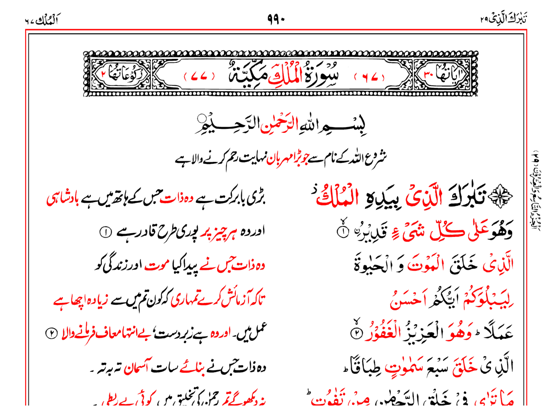 تَبٰرَكَ الَّذِیْ ٢٩
٩٩٠
اَلْمُلْك ٦٧
اٰیَاتُهَا ٣٠ (٦٧) سُوْرَةُ الْمُلْكِ مَكِّیَّةٌ (٧٧) رُكُوْعَاتُهَا ٢
بِسْمِ اللّٰهِ الرَّحْمٰنِ الرَّحِیْمِ
شروع اللہ کے نام سے جو بڑا مہربان نہایت رحم کرنے والا ہے
تَبٰرَكَ الَّذِیْ بِیَدِهِ الْمُلْكُ ۫
بڑی بابرکت ہے وہ ذات جس کے ہاتھ میں ہے بادشاہی
وَهُوَ عَلٰی كُلِّ شَیْءٍ قَدِیْرُ ۨ ۙ ١
اور وہ ہر چیز پر پوری طرح قادر ہے ١
الَّذِیْ خَلَقَ الْمَوْتَ وَ الْحَیٰوةَ
وہ ذات جس نے پیدا کیا موت اور زندگی کو
لِیَبْلُوَكُمْ اَیُّكُمْ اَحْسَنُ
تاکہ آزمائش کرے تمہاری کہ کون تم میں سے زیادہ اچھا ہے
عَمَلًا ؕ وَهُوَ الْعَزِیْزُ الْغَفُوْرُ ۙ ٢
عمل میں۔ اور وہ ہے زبردست، بے انتہا معاف فرمانے والا ٢
الَّذِیْ خَلَقَ سَبْعَ سَمٰوٰتٍ طِبَاقًا ؕ
وہ ذات جس نے بنائے سات آسمان تہ بہ تہ۔
مَا تَرٰی فِیْ خَلْقِ الرَّحْمٰنِ مِنْ تَفٰوُتٍ ؕ
نہ دیکھو گے تم رحمٰن کی تخلیق میں کوئی بے ربطی۔